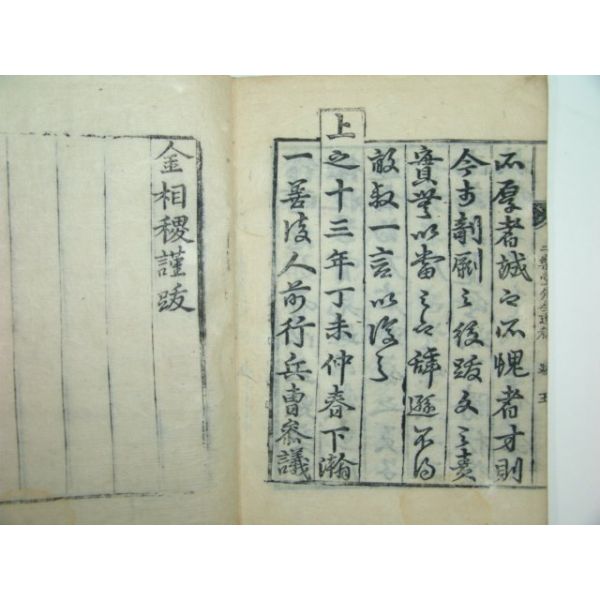 所厚者誠也所愧者才則
今於剞劂之役跋文之責
實無以當之也辭遜不得
敢敍一言以復之
上之十三年丁未仲春下瀚
一善後人前行兵曹參議
金相稷謹跋